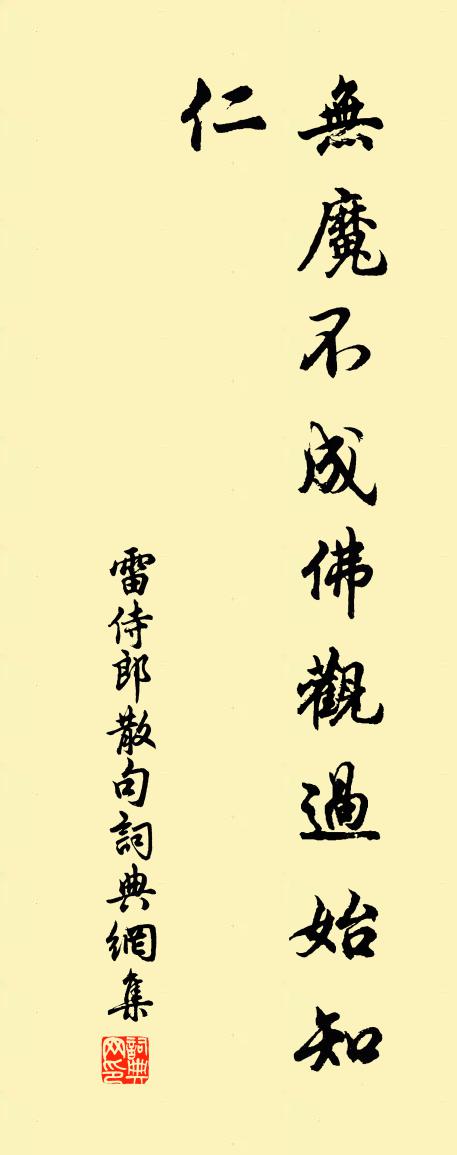 無魔不成佛觀過始知
仁
雷侍郎散句詞典網集
詞典
网印